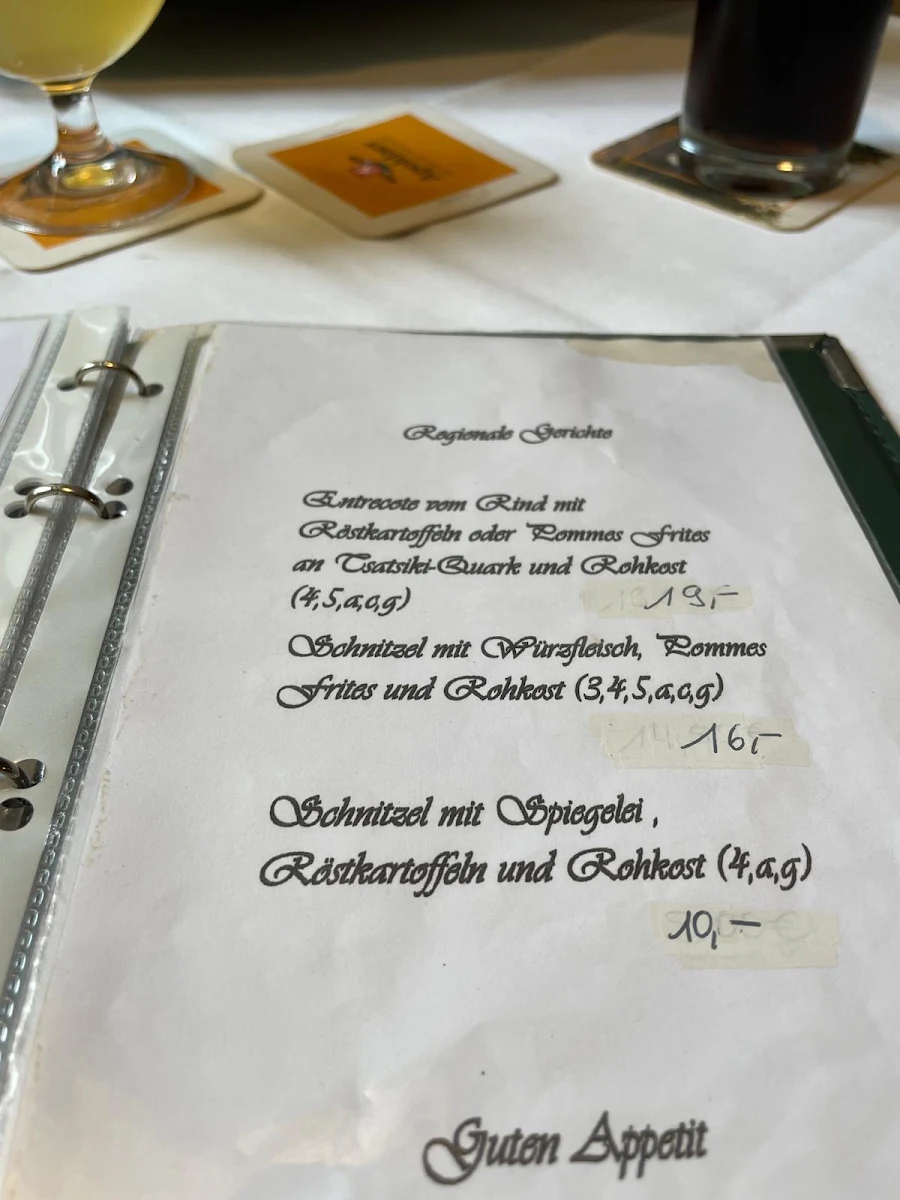 Regionale Gerichte
Entrecote vom Rind mit
Röstkartoffeln oder Pommes Frites
an Tsatsiki-Quark und Rohkost
(4,5,a,c,g) 19,-
Schnitzel mit Würzfleisch, Pommes
Frites und Rohkost (3,4,5,a,c,g)
16,-
Schnitzel mit Spiegelei ,
Röstkartoffeln und Rohkost (4,a,g)
10,-
Guten Appetit